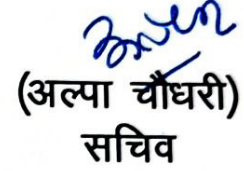 (अल्पा चौधरी)
सचिव